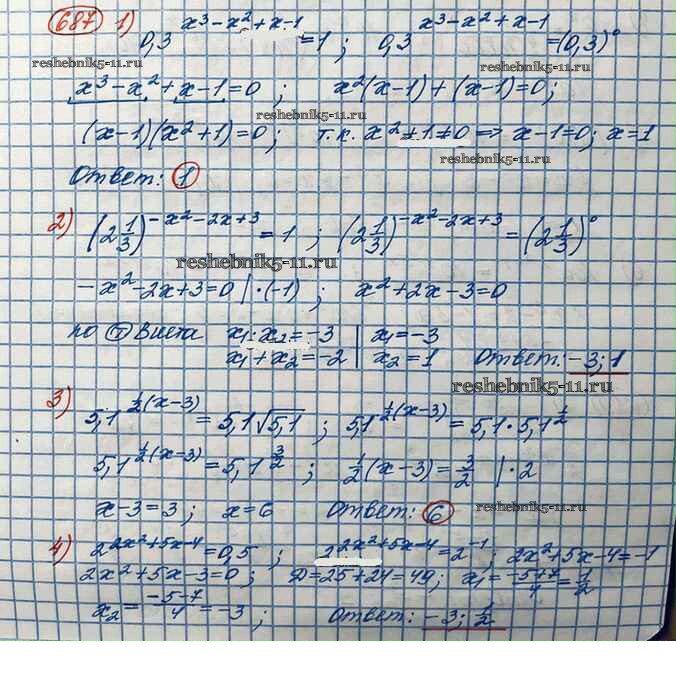 687 1) 0,3^(x³-x²+x-1) = 1 ; 0,3^(x³-x²+x-1) = (0,3)⁰
reshebnik5-11.ru reshebnik5-11.ru
x³-x²+x-1=0 ; x²(x-1)+(x-1)=0;
reshebnik5-11.ru
(x-1)(x²+1)=0; т.к. x²+1≠0 => x-1=0; x=1
reshebnik5-11.ru
Ответ: 1
2) (2 1/3)^(-x²-2x+3) = 1 ; (2 1/3)^(-x²-2x+3) = (2 1/3)⁰
reshebnik5-11.ru
-x²-2x+3=0 |·(-1) ; x²+2x-3=0
по т Виета x₁·x₂=-3 | x₁=-3
x₁+x₂=-2 | x₂=1 Ответ: -3; 1
reshebnik5-11.ru
3) 5,1^(1/2(x-3)) = 5,1√5,1 ; 5,1^(1/2(x-3)) = 5,1·5,1^(1/2)
5,1^(1/2(x-3)) = 5,1^(3/2) ; 1/2(x-3)=3/2 |·2
x-3=3 ; x=6 Ответ: 6
reshebnik5-11.ru
4) 2^(2x²+5x-4) = 0,5 ; 2^(2x²+5x-4) = 2⁻¹ ; 2x²+5x-4=-1
2x²+5x-3=0 ; D=25+24=49; x₁=(-5+7)/4=1/2
x₂=(-5-7)/4=-3 ; Ответ: -3; 1/2
reshebnik5-11.ru